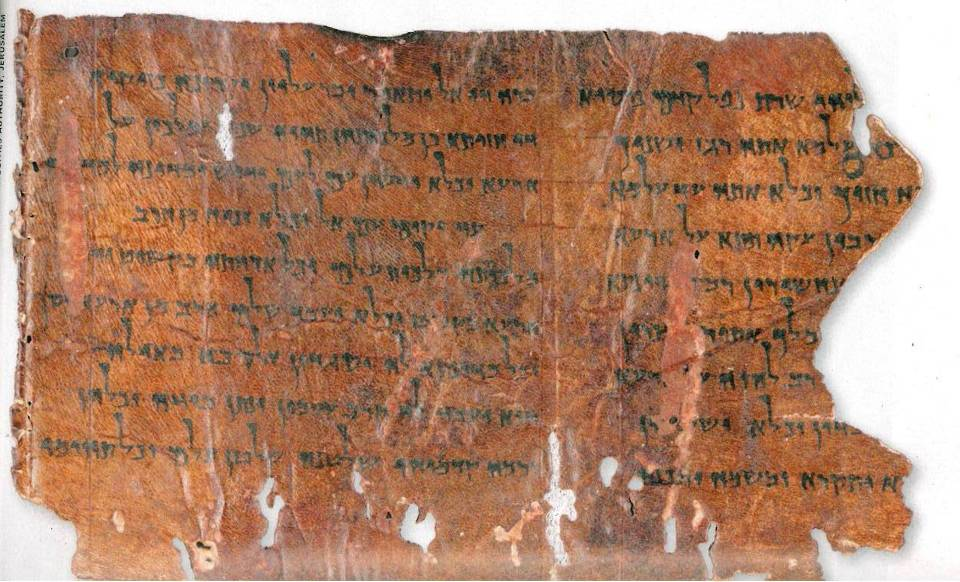 שרת נפל קדם כרסיא
עלמא אתה רגז ושניך
א חזוך וכלא אתה עד עלמא
רברבין עקה תתא על ארעא
ונחשירון רב
מלך אתור
רב להוה על ארעא
וכלא
א יתקרא ובשמה יתכנה
ברה די אל יתאמר ובר עליון יקרונה כזיקיא
די חזותא כן מלכותהן תהוה שני ימלכון על
ארעא וכלא ידשון עם לעם ידוש ומדינה
עד יקום עם אל וכלא יניח מן חרב
מלכותה מלכות עלם וכל ארחתה בקשוט
ארעא בקשט וכלא יעבד שלם חרב מן ארעא יסף
וכל מדינתא לה יסגדון אל רבא באילה
הוא ויעבד לה קרב עממין ינתן בידה וכלהן
ירמה קדמוהי שלטנה שלטן עלם וכל תהומי
AUTHORITY, JERUSALEM